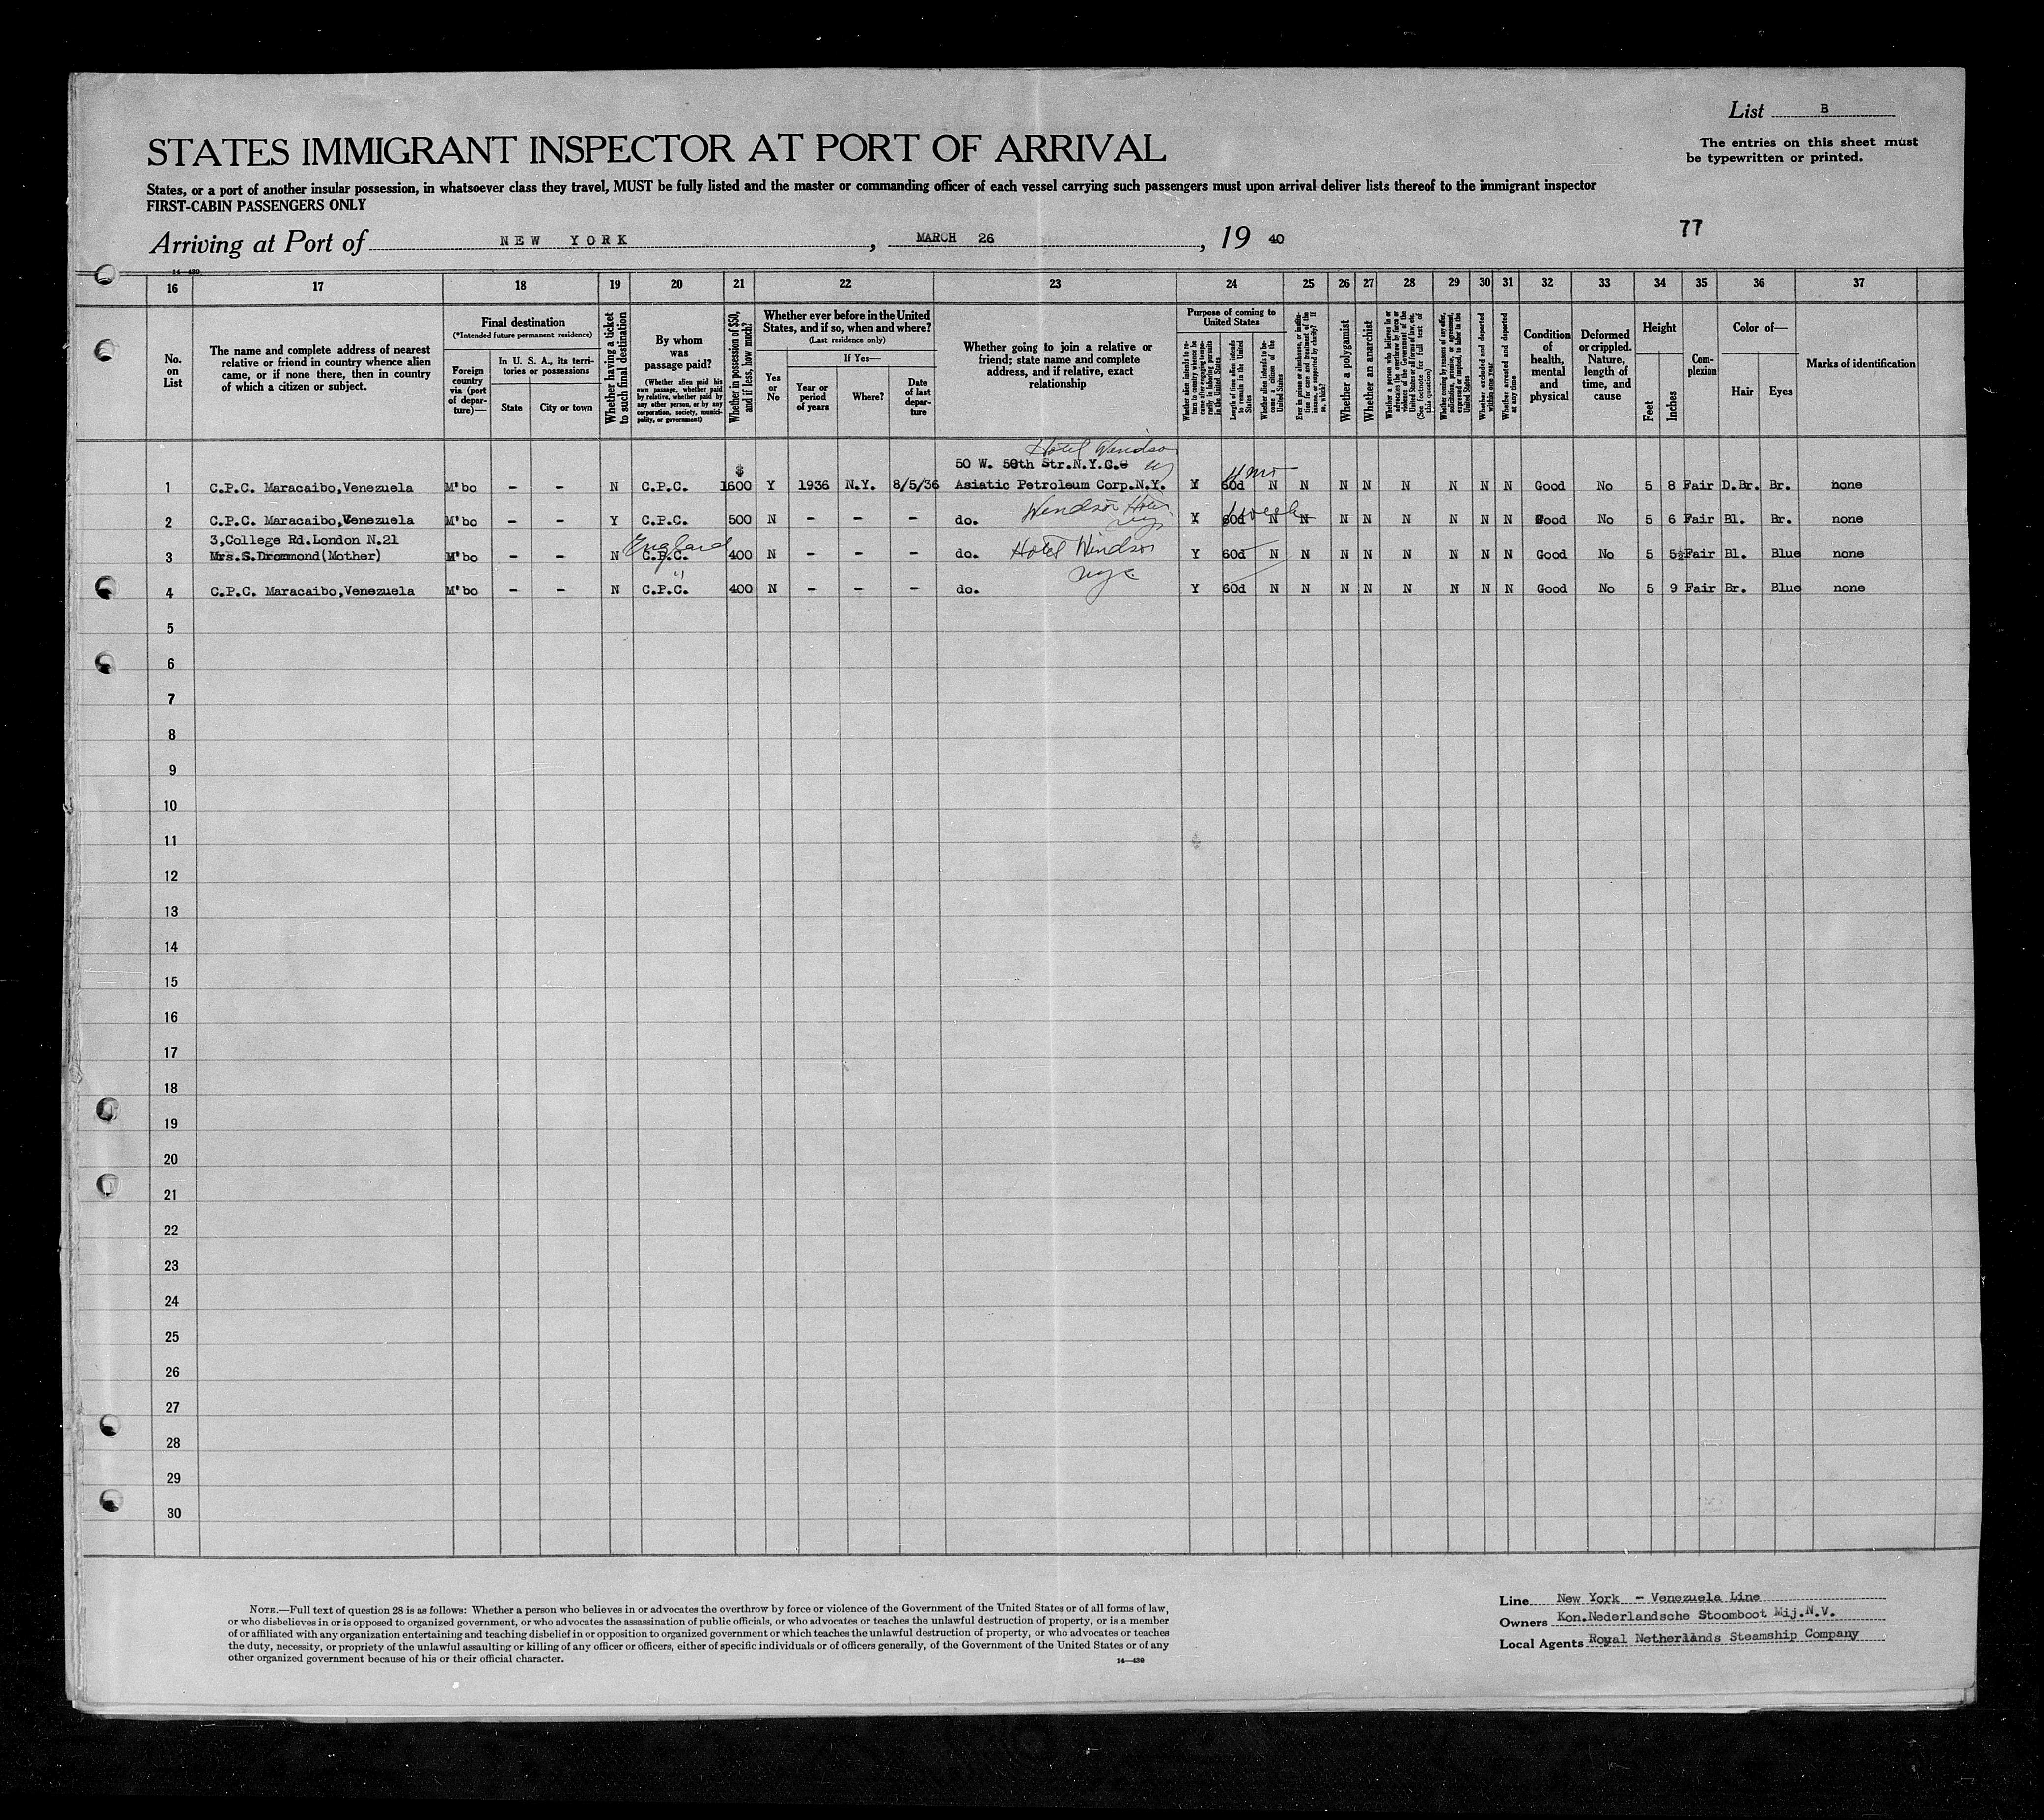 List B
The entries on this sheet must
be typewritten or printed.
STATES IMMIGRANT INSPECTOR AT PORT OF ARRIVAL
States, or a port of another insular possession, in whatsoever class they travel, MUST be fully listed and the master or commanding officer of each vessel carrying such passengers must upon arrival deliver lists thereof to the immigrant inspector
FIRST-CABIN PASSENGERS ONLY
77
Arriving at Port of NEW YORK, MARCH 26, 19 40
14—430
16 17 18 19 20 21 22 23 24 25 26 27 28 29 30 31 32 33 34 35 36 37
No.
on
List
The name and complete address of nearest
relative or friend in country whence alien
came, or if none there, then in country
of which a citizen or subject.
Final destination
(*Intended future permanent residence)
Foreign
country
via (port
of depar-
ture)—
In U. S. A., its terri-
tories or possessions
State
City or town
Whether having a ticket
to such final destination
By whom
was
passage paid?
(Whether alien paid his
own passage, whether paid
by relative, whether paid by
any other person, or by any
corporation, society, munici-
pality, or government)
Whether in possession of $50,
and if less, how much?
Whether ever before in the United
States, and if so, when and where?
(Last residence only)
Yes
or
No
If Yes—
Year or
period
of years
Where?
Date
of last
depar-
ture
Whether going to join a relative or
friend; state name and complete
address, and if relative, exact
relationship
Purpose of coming to
United States
Whether alien intends to re-
turn to country whence he
came after engaging tempo-
rarily in laboring pursuits
in the United States
Length of time alien intends
to remain in the United
States
Whether alien intends to be-
come a citizen of the
United States
Ever in prison or almshouse, or institu-
tion for care and treatment of the
insane, or supported by charity? If
so, which?
Whether a polygamist
Whether an anarchist
Whether a person who believes in or
advocates the overthrow by force or
violence of the Government of the
United States or all forms of law, etc.
(See footnote for full text of
this question)
Whether coming by reason of any offer,
solicitation, promise, or agreement,
expressed or implied, to labor in the
United States
Whether excluded and deported
within one year
Whether arrested and deported
at any time
Condition
of
health,
mental
and
physical
Deformed
or crippled.
Nature,
length of
time, and
cause
Height
Feet
Inches
Com-
plexion
Color of—
Hair
Eyes
Marks of identification
Hotel Windsor
50 W. 58th Str.N.Y.C.
$
1 C.P.C. Maracaibo,Venezuela M'bo – – N C.P.C. 1600 Y 1936 N.Y. 8/5/36 Asiatic Petroleum Corp.N.Y. Y 60d N N N N N N N N Good No 5 8 Fair D.Br. Br. none
2 C.P.C. Maracaibo,Venezuela M'bo – – Y C.P.C. 500 N – – – do. Windsor Hotel Y 60d N N N N N N N N Good No 5 6 Fair Bl. Br. none
3,College Rd.London N.21 England
3 Mrs.S.Drommond(Mother) M'bo – – N C.P.C. 400 N – – – do. Hotel Windsor Y 60d N N N N N N N N Good No 5 5½ Fair Bl. Blue none
" nyc
4 C.P.C. Maracaibo,Venezuela M'bo – – N C.P.C. 400 N – – – do. Y 60d N N N N N N N N Good No 5 9 Fair Br. Blue none
5
6
7
8
9
10
11
12
13
14
15
16
17
18
19
20
21
22
23
24
25
26
27
28
29
30
NOTE.—Full text of question 28 is as follows: Whether a person who believes in or advocates the overthrow by force or violence of the Government of the United States or of all forms of law,
or who disbelieves in or is opposed to organized government, or who advocates the assassination of public officials, or who advocates or teaches the unlawful destruction of property, or is a member
of or affiliated with any organization entertaining and teaching disbelief in or opposition to organized government or which teaches the unlawful destruction of property, or who advocates or teaches
the duty, necessity, or propriety of the unlawful assaulting or killing of any officer or officers, either of specific individuals or of officers generally, of the Government of the United States or of any
other organized government because of his or their official character.
14—430
Line New York – Venezuela Line
Owners Kon.Nederlandsche Stoomboot Mij.N.V.
Local Agents Royal Netherlands Steamship Company